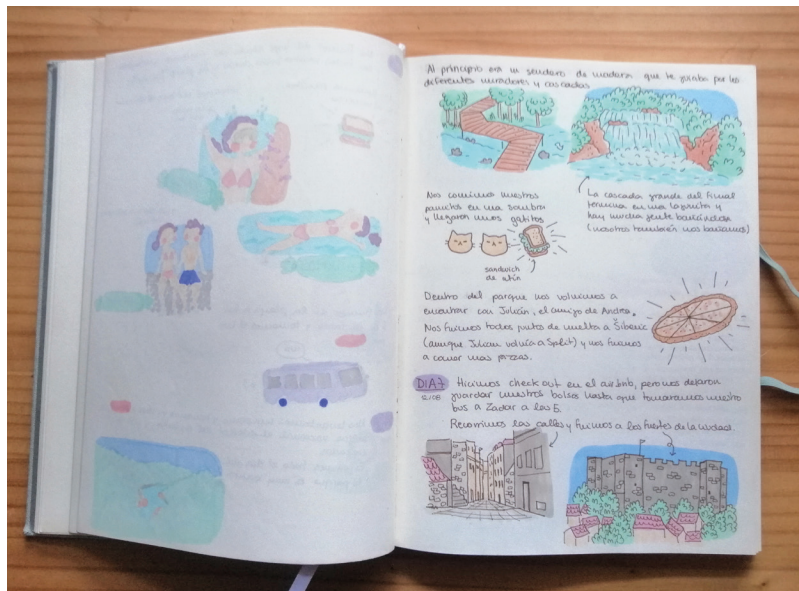 Al principio era un sendero de madera que te guiaba por los
diferentes miradores y cascadas
Nos comimos nuestros
panchos en una sombra
y llegaron unos gatitos
sandwich
de atún
La cascada grande del final
terminaba en una lagunita y
hay mucha gente bañándose
(nosotros también nos bañamos)
Dentro del parque nos volvimos a
encontrar con Julián, el amigo de Andrea.
Nos fuimos todos juntos de vuelta a Šibenic
(aunque Julian volvía a Split) y nos fuimos
a comer unas pizzas.
DIA 7
12/08
Hicimos check out en el airbnb, pero nos dejaron
guardar nuestros bolsos hasta que tomaramos nuestro
bus a Zadar a las 5.
Recorrimos las calles y fuimos a los fuertes de la ciudad.